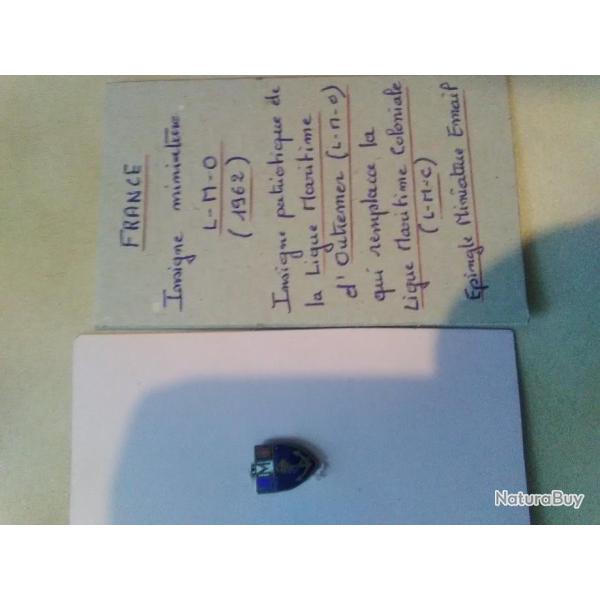 FRANCE
Insigne miniature
L-M-O
(1962)
Insigne patriotique de
la Ligue Maritime
d'Outremer (L-M-O)
qui remplace la
Ligue Maritime Coloniale
(L-M-C)
Epingle Miniature Email
M
NaturaBuy